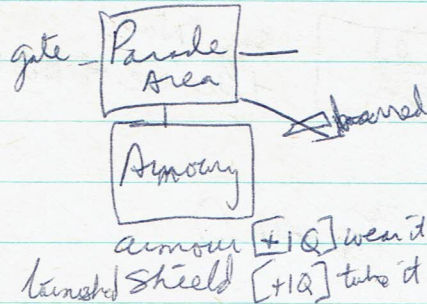 gate
Parade
Area
barred
Armoury
armour [+1Q] wear it
tarnished shield [+1Q] take it